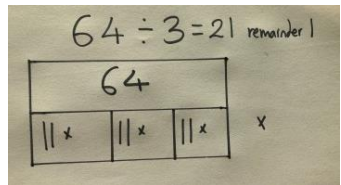 64 ÷ 3 = 21 remainder 1
64
|| x || x || x x